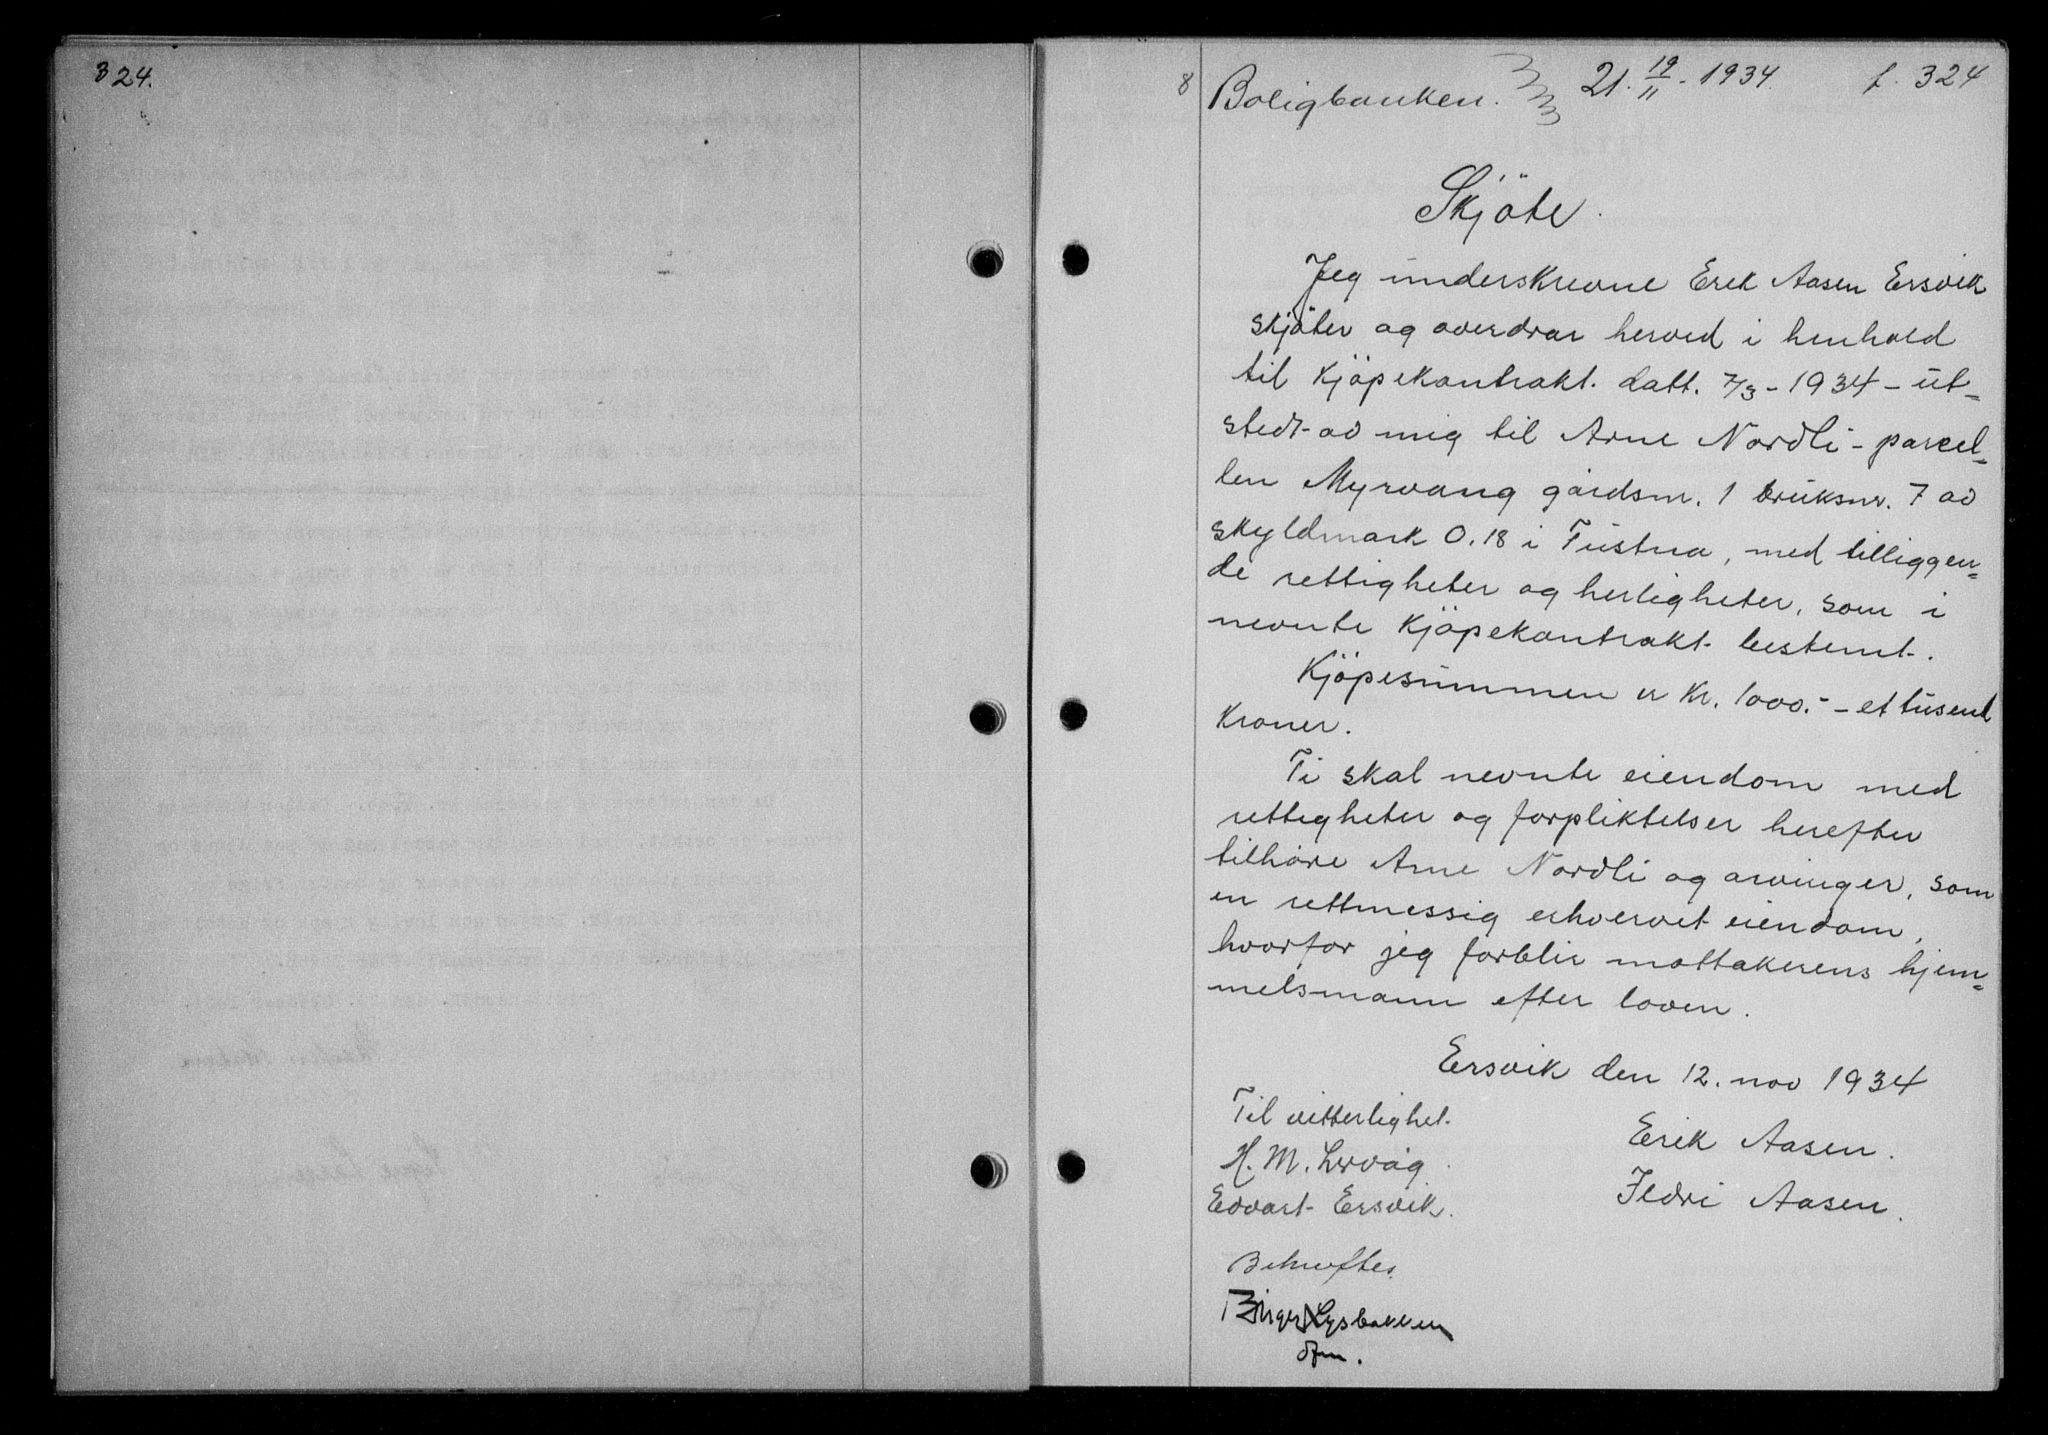 324.
8 Boligbanken. 21. 19/11 - 1934. f. 324
Skjöte.
Jeg underskrevne Erik Aasen Ersvik
skjöter og overdrar herved i henhold
til Kjöpekontrakt. datt. 7/3 - 1934 - ut=
stedt av mig til Arne Nordli - parcel=
len Myrvang gårdsnr. 1 bruksnr. 7 av
skyldmark 0.18 i Tustna, med tilliggen=
de rettigheter og herligheter, som i
nevnte Kjöpekontrakt bestemt.
Kjöpesummen er Kr. 1000.- - et tusend
Kroner.
Ti skal nevnte eiendom med
rettigheter og forpliktelser herefter
tilhöre Arne Nordli og arvinger, som
en rettmessig erhvervet eiendom,
hvorfor jeg forblir mottakerens hjem=
melsmann efter loven.
Ersvik den 12. nov 1934
Til vitterlighet.
Erik Aasen.
H. M. Lervåg.
Ildri Aasen.
Edvart Ersvik.
Bekreftes
Birger Lysbakken